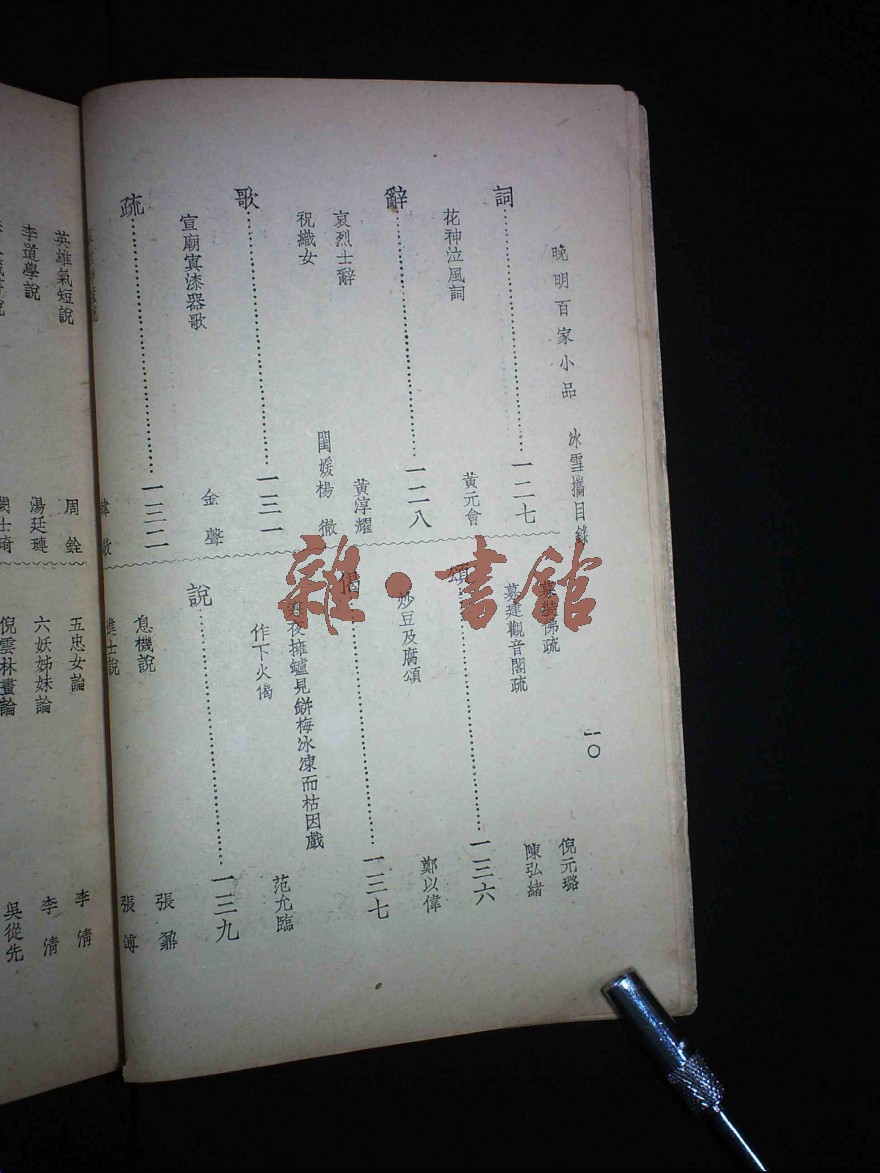 晚明百家小品 冰雪攜目錄 一〇
詞……一二七
花神泣風詞 黃元會
辭……一二八
哀烈士辭 黃淳耀
祝織女 閨媛楊徹
歌……一三一
宣廟寘漆器歌 金聲
疏……一三二
裝佛疏 倪元璐
募建觀音閣疏 陳弘緒
頌……一三六
炒豆及腐頌 鄭以偉
偈……一三七
夜擁爐見缾梅冰凍而枯因戲
作下火偈 范允臨
說……一三九
息機說 張鼐
進士說 張溥
英雄氣短說 周銓
李道學說 湯廷璉
五忠女論 李清
六妖姊妹論 李清
倪雲林畫論 吳從先
雜·書館